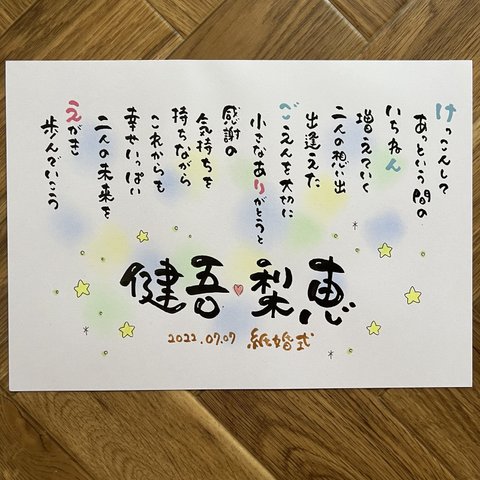 けっこんして
あっという間の
いちねん
増えていく
二人の想い出
出逢えた
ごえんを大切に
小さなありがとうと
感謝の
気持ちを
持ちながら
これからも
幸せいっぱい
二人の未来を
えがき
歩んでいこう
健吾 梨恵
2022.07.07 紙婚式